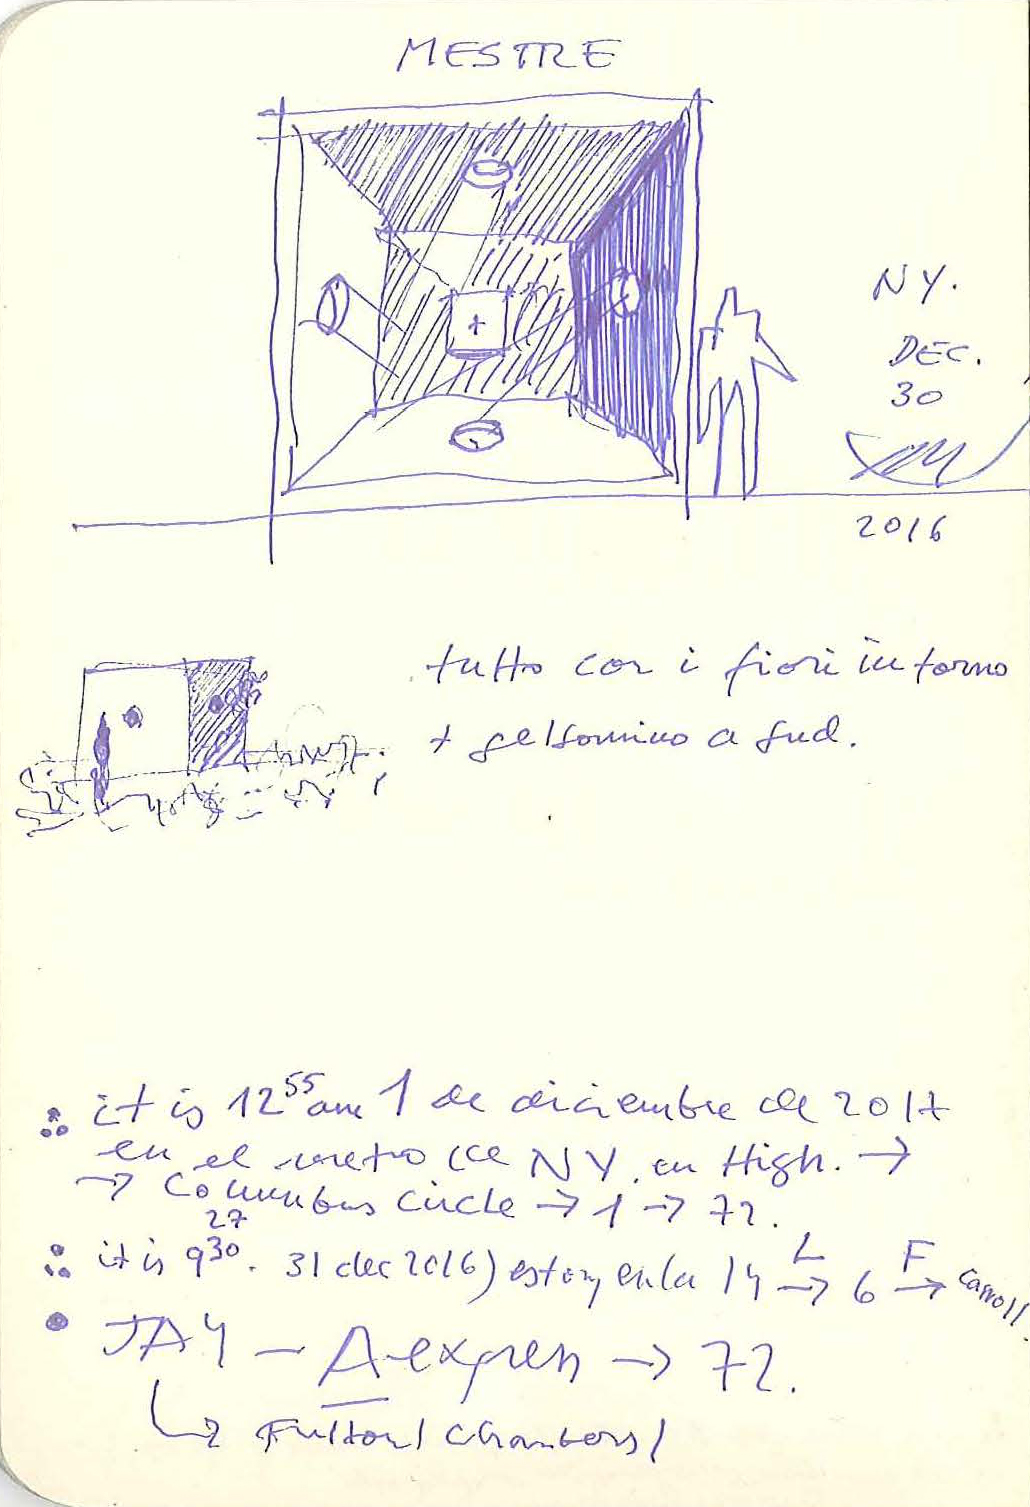 MESTRE
NY.
DEC.
30
2016
tutto con i fiori intorno
+ gelsomino a sud.
it is 12 55 am 1 de diciembre de 2017
en el metro de NY. en High. →
→ Columbus Circle → 1 → 72.
27
it is 9 30. 31 dec 2016) estoy en la 14 L → 6 F → Carroll.
JAY – A-express → 72.
↳ Fulton/Chambers/